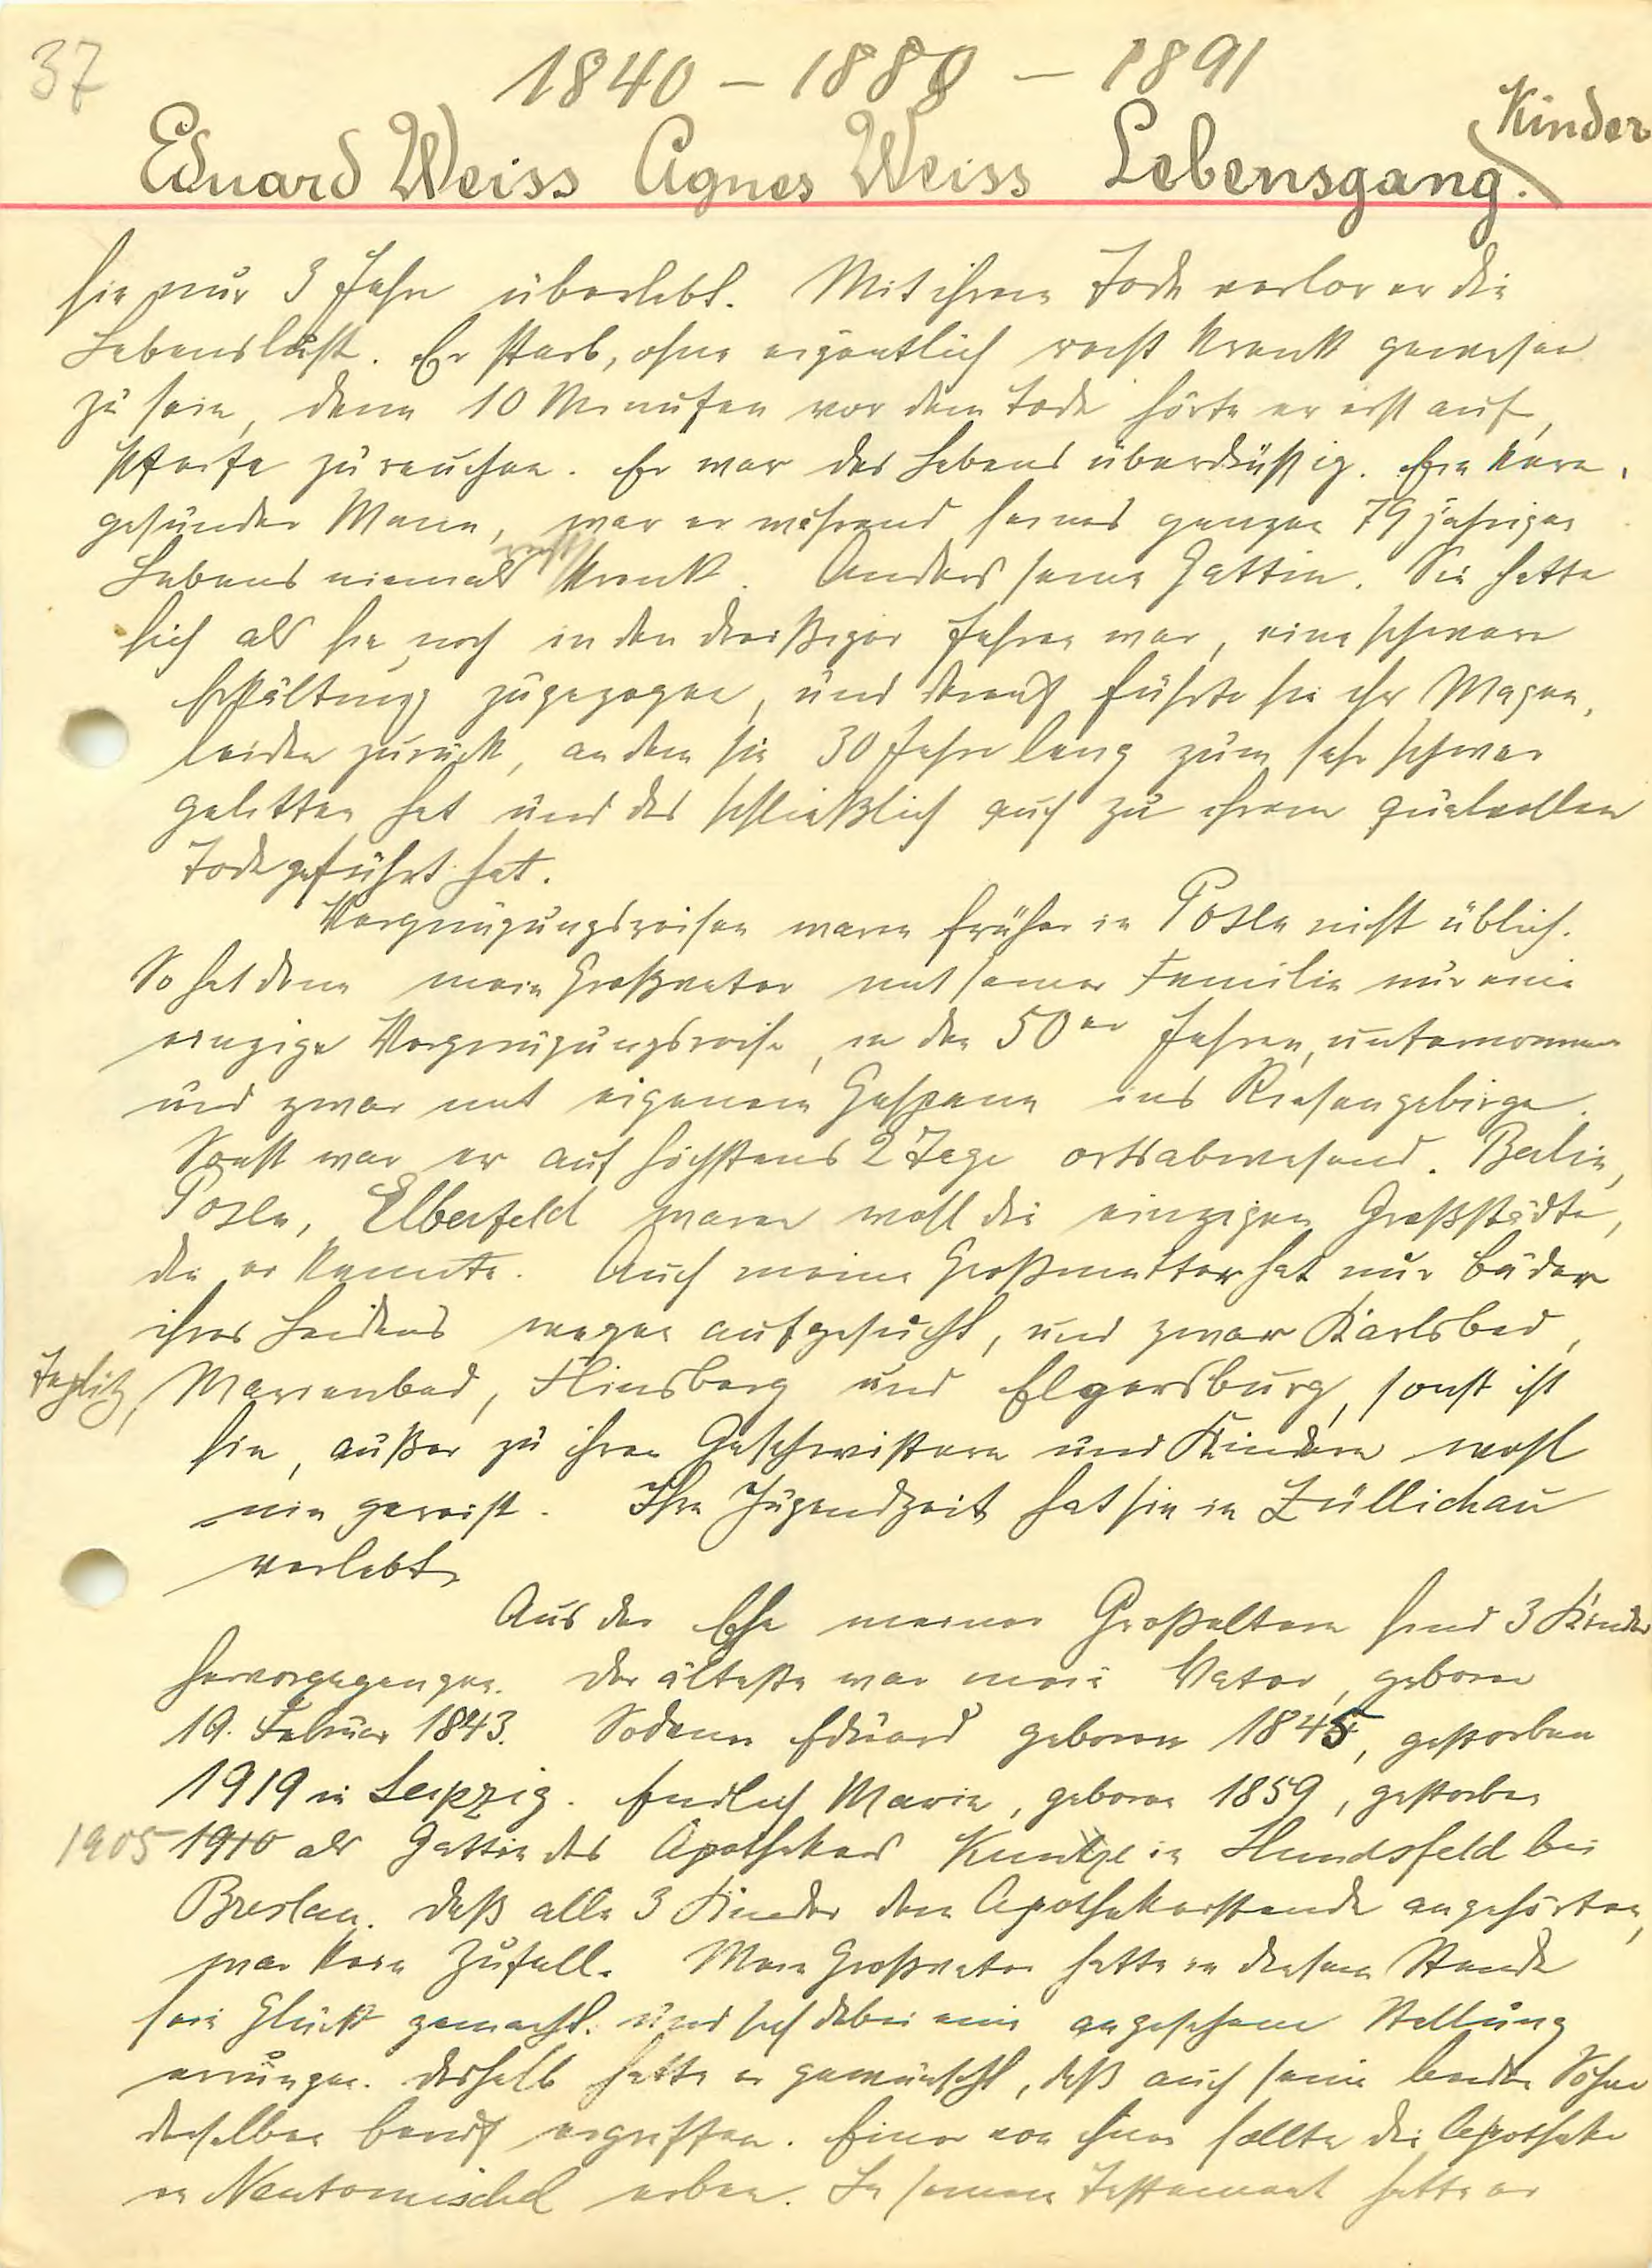 37
1840 – 1889 – 1891
Kinder
Eduard Weiss Agnes Weiss Lebensgang.
sie nur 3 Jahre überlebt. Mit ihrem Tode verlor er die
Lebenslust. Er starb, ohne eigentlich recht krank gewesen
zu sein, denn 10 Minuten vor dem Tode hörte er erst auf,
Pfeife zu rauchen. Er war des Lebens überdrüssig. Ein kern-
gesunder Mann, war er während seines ganzen 79 jährigen
Lebens niemals recht krank. Anders seine Gattin. Sie hatte
sich als sie noch in den dreißiger Jahren war, eine schwere
Erkältung zugezogen, und darauf führte sie ihr Magen-
leiden zurück, an dem sie 30 Jahre lang zum sehr schwer
gelitten hat und das schließlich auch zu ihrem qualvollen
Tode geführt hat.
Vergnügungsreisen waren früher in Posen nicht üblich.
So hat denn mein Großvater mit seiner Familie nur eine
einzige Vergnügungsreise, in den 50er Jahren, unternommen
und zwar mit eigenem Gespann ins Riesengebirge.
Sonst war er auf höchstens 2 Tage ortsabwesend. Berlin,
Posen, Elberfeld waren wohl die einzigen Großstädte,
die er kannte. Auch meine Großmutter hat nur Bäder
ihres Leidens wegen aufgesucht, und zwar Karlsbad,
Teplitz, Marienbad, Flinsberg und Elgersburg, sonst ist
sie, außer zu ihren Geschwistern und Kindern wohl
nie gereist. Ihre Jugendzeit hat sie in Züllichau
verlebt.
Aus der Ehe meiner Großeltern sind 3 Kinder
hervorgegangen. Der älteste war mein Vater, geboren
19. Februar 1843. Sodann Eduard geboren 1845, gestorben
1919 in Leipzig. Endlich Marie, geboren 1859, gestorben
1905 1910 als Gattin des Apothekers Kuntze in Hundsfeld bei
Breslau. Daß alle 3 Kinder dem Apothekerstande angehörten,
war kein Zufall. Mein Großvater hatte in diesem Stande
sein Glück gemacht und sich dabei eine angesehene Stellung
errungen. Deshalb hatte er gewünscht, daß auch seine beiden Söhne
denselben Beruf ergriffen. Einer von ihnen sollte die Apotheke
in Neutomischel erben. In seinem Testament hatte er